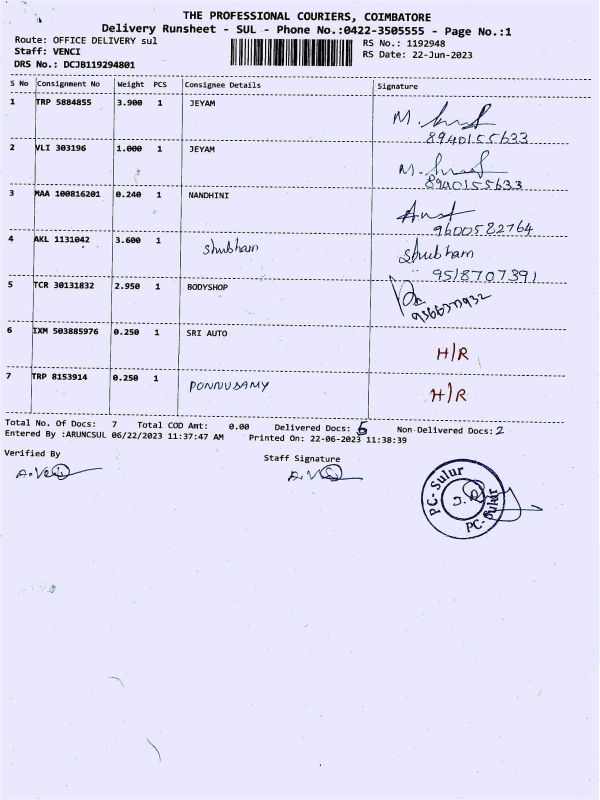 THE PROFESSIONAL COURIERS, COIMBATORE
Delivery Runsheet - SUL - Phone No.:0422-3505555 - Page No.:1
Route: OFFICE DELIVERY sul
RS No.: 1192948
Staff: VENCI
RS Date: 22-Jun-2023
DRS No.: DCJB119294801
S No Consignment No Weight PCS Consignee Details Signature
1 TRP 5884855 3.900 1 JEYAM
8940155633
2 VLI 303196 1.000 1 JEYAM
8940155633
3 MAA 100816201 0.240 1 NANDHINI
9600582764
4 AKL 1131042 3.600 1 shubham shubham
9518707391
5 TCR 30131832 2.950 1 BODYSHOP
6 IXM 503885976 0.250 1 SRI AUTO
H/R
7 TRP 8153914 0.250 1 PONNUSAMY H/R
Total No. Of Docs: 7 Total COD Amt: 0.00 Delivered Docs: 5 Non-Delivered Docs: 2
Entered By :ARUNCSUL 06/22/2023 11:37:47 AM Printed On: 22-06-2023 11:38:39
Verified By Staff Signature
PC-Sulur
PC-Sulur